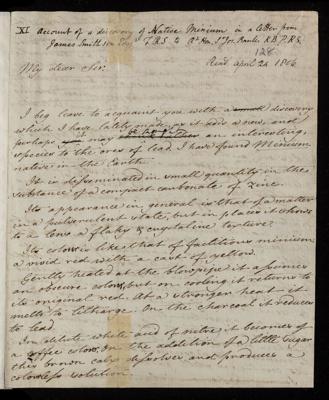 XI Account of a discovery of Native Minium in a letter from
James Smithson Esq F.R.S. to Rt Hon. Sr Jos. Banks K.B. P.R.S.
128
Read April 24 1806
My dear Sir.
I beg leave to acquaint you with a small discovery
which I have lately made, as it adds a new, and
perhaps may be thought an interesting,
species to the ores of lead. I have found Minium
native in the Earth.
It is disseminated in small quantity in the
substance of a compact carbonate of zinc.
Its appearance in general is that of a matter
in a pulverulent state, but in places it shows
to a Lens a flaky & crystaline texture.
Its color is like that of factitious minium,
a vivid red with a cast of yellow.
Gently heated at the blowpipe it assumes
an obscure color, but on cooling it returns to
its original red. At a stronger heat it
melts to litharge. On the charcoal it reduces
to lead.
In dilute white acid of nitre it becomes of
a coffee color. On the addition of a little sugar
this brown calx dissolves and produces a
colorless solution